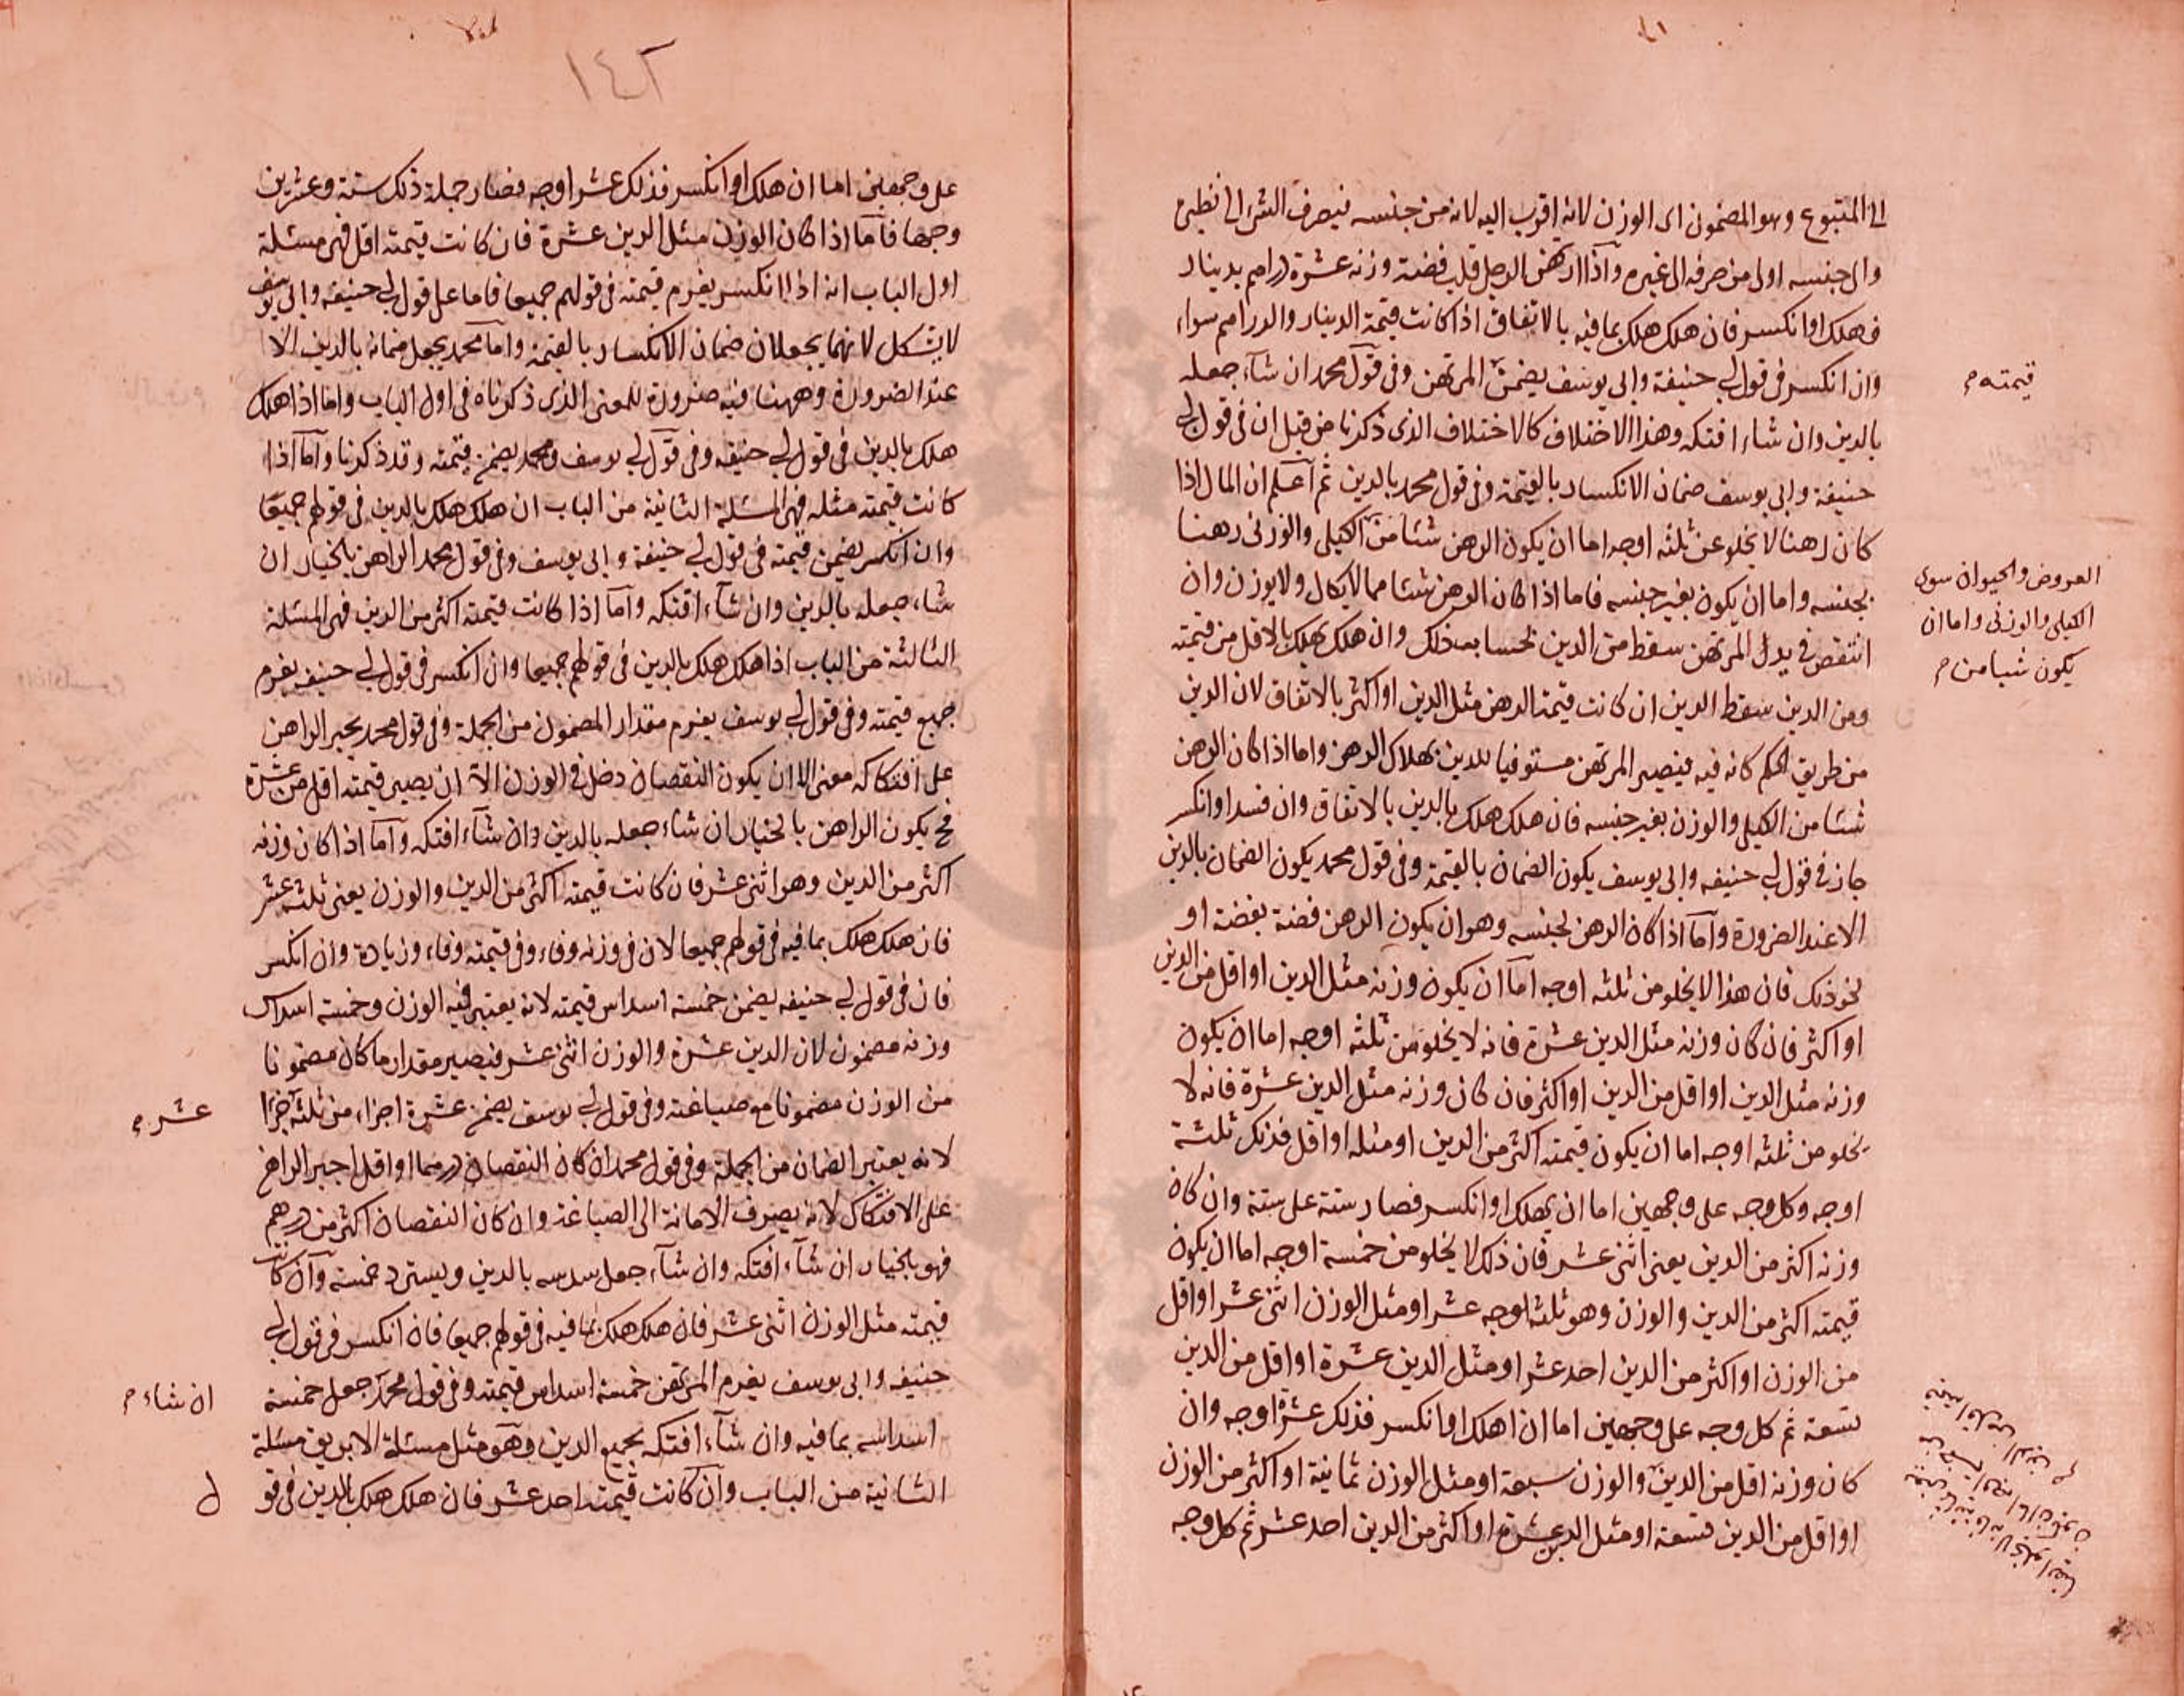 الى المتبوع وهو المضمون اى الوزن لانه اقرب اليه لانه من جنسه فيصرف الشئ الى نظيره
والى جنسه اولى من صرفه الى غيره واذا ارتهن الرجل قلب فضة وزنه عشرة دراهم بدينار
فهلك او انكسر فان هلك هلك بما فيه بالاتفاق اذا كانت قيمة الدينار والدراهم سواء
وان انكسر فى قول ابى حنيفة وابى يوسف يضمن المرتهن وفى قول محمد ان شاء جعله
قيمته م
بالدين وان شاء افتكه وهذا الاختلاف كالاختلاف الذى ذكرنا من قبل ان فى قول ابى
حنيفة وابى يوسف ضمان الانكسار بالقيمة وفى قول محمد بالدين ثم اعلم ان المال اذا
كان رهنا لا يخلو عن ثلثه اوجه اما ان يكون الرهن شئا من الكيلى والوزنى رهنا
بجنسه واما ان يكون بغير جنسه فاما اذا كان الرهن شئا مما لا يكال ولا يوزن وان
العروض والحيوان سوى
الكيلى والوزنى واما ان
يكون شيا من م
انتقص فى يدل المرتهن سقط من الدين بحسابه ذلك وان هلك يهلك بالاقل من قيمته
ومن الدين سقط الدين ان كانت قيمة الرهن مثل الدين او اكثر بالاتفاق لان الدين
من طريق الحكم كانه فيه فيصير المرتهن مستوفيا للدين بهلاك الرهن واما اذا كان الرهن
شئا من الكيلى والوزن بغير جنسه فان هلك هلك بالدين بالاتفاق وان فسد او انكسر
جاز فى قول ابى حنيفه وابى يوسف يكون الضمان بالقيمة وفى قول محمد يكون الضمان بالدين
الا عند الضرورة واما اذا كان الرهن لجنسه وهو ان يكون الرهن فضة بفضة او
نحو ذلك فان هذا لا يخلو من ثلثه اوجه اما ان يكون وزنه مثل الدين او اقل من الدين
او اكثر فان كان وزنه مثل الدين عشرة فانه لا يخلو من ثلثه اوجه اما ان يكون
وزنه مثل الدين او اقل من الدين او اكثر فان كان وزنه مثل الدين عشرة فانه لا
يخلو من ثلثه اوجه اما ان يكون قيمته اكثر من الدين او مثله او اقل فذلك ثلثة
اوجه وكل وجه على وجهين اما ان يهلك او انكسر فصار ستة على ستة وان كان
وزنه اكثر من الدين يعنى اثنى عشر فان ذلك لا يخلو من خمسة اوجه اما ان يكون
قيمته اكثر من الدين والوزن وهو ثلثه اوجه عشر او مثل الوزن اثنى عشر او اقل
من الوزن او اكثر من الدين احد عشر او مثل الدين عشرة او اقل من الدين
تسعة ثم كل وجه على وجهين اما ان اهلك او انكسر فذلك عشرة اوجه وان
كان وزنه اقل من الدين والوزن سبعة او مثل الوزن ثمانية او اكثر من الوزن
او اقل من الدين تسعة او مثل الدين عشرة او اكثر من الدين احد عشر ثم كل وجه
١٤٢
على وجهين اما ان هلك او انكسر فذلك عشر اوجه فصار جملة ذلك ستة وعشرين
وجها فاما اذا كان الوزن مثل الدين عشرة فان كانت قيمته اقل فهى مسئلة
اول الباب انه اذا انكسر يغرم قيمته فى قولهم جميعا فاما على قول ابى حنيفه وابى يوسف
لا يشكل لانهما يجعلان ضمان الانكسار بالقيمة واما محمد يجعل ضمانه بالدين الا
عند الضرورة وههنا فيه ضرورة للمعنى الذى ذكرناه فى اول الباب واما اذا هلك
هلك بالدين فى قول ابى حنيفه وفى قول ابى يوسف ومحمد يضمن قيمته وقد ذكرنا واما اذا
كانت قيمته مثله فهى المسئلة الثانية من الباب ان هلك هلك بالدين فى قولهم جميعا
وان انكسر يضمن قيمته فى قول ابى حنيفة وابى يوسف وفى قول محمد الراهن بالخيار ان
شاء جعله بالدين وان شاء افتكه واما اذا كانت قيمته اكثر من الدين فهى المسئلة
الثالثة من الباب اذا هلك هلك بالدين فى قولهم جميعا وان انكسر فى قول ابى حنيفه يغرم
جميع قيمته وفى قول ابى يوسف يغرم مقدار المضمون من الجملة وفى قول محمد يجبر الراهن
على افتكاكه معنى الا ان يكون النقصان دخل فى الوزن الا ان يصير قيمته اقل من عشرة
فح يكون الراهن بالخيار ان شاء جعله بالدين وان شاء افتكه واما اذا كان وزنه
اكثر من الدين وهو اثنى عشر فان كانت قيمته اكثر من الدين والوزن يعنى ثلثه عشر
فان هلك هلك بما فيه فى قولهم جميعا لان فى وزنه وفاء وفى قيمته وفاء وزيادة وان انكسر
فان فى قول ابى حنيفه يضمن خمسة اسداس قيمته لانه يعتبر فيه الوزن وخمسة اسداس
وزنه مضمون لان الدين عشرة والوزن اثنى عشر فيصير مقدار ما كان مضمونا
من الوزن مضمونا مع صياغته وفى قول ابى يوسف يضمن عشرة اجزاء من ثلثه اجزا
عشر م
لانه يعتبر الضمان من الجملة وفى قول محمد ان كان النقصان درهما او اقل اجبر الراهن
على الافتكاك لانه يصرف الامانة الى الصياغة وان كان النقصان اكثر من درهم
فهو بالخيار ان شاء افتكه وان شاء جعل سدسه بالدين ويسترد خمسة وان كانت
قيمته مثل الوزن اثنى عشر فان هلك هلك بما فيه فى قولهم جميعا فان انكسر فى قول ابى
حنيفه وابى يوسف يغرم المرتهن خمسة اسداس قيمته وفى قول محمد جعل خمسة
ان شاء م
اسداسه بما فيه وان شاء افتكه بجميع الدين وهو مثل مسئلة الابريق مسئلة
الثانية من الباب وان كانت قيمته احد عشر فان هلك هلك بالدين فى قو
ل